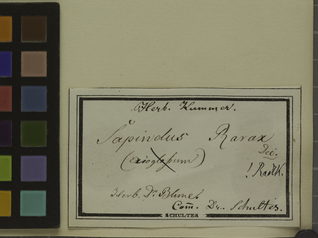 Herb. Kummer.
Sapindus Rarax
Dec.
(exioglossum)
! Radlk.
Herb. Dr. Blume
Com. Dr. Schultes.
SCHULTES